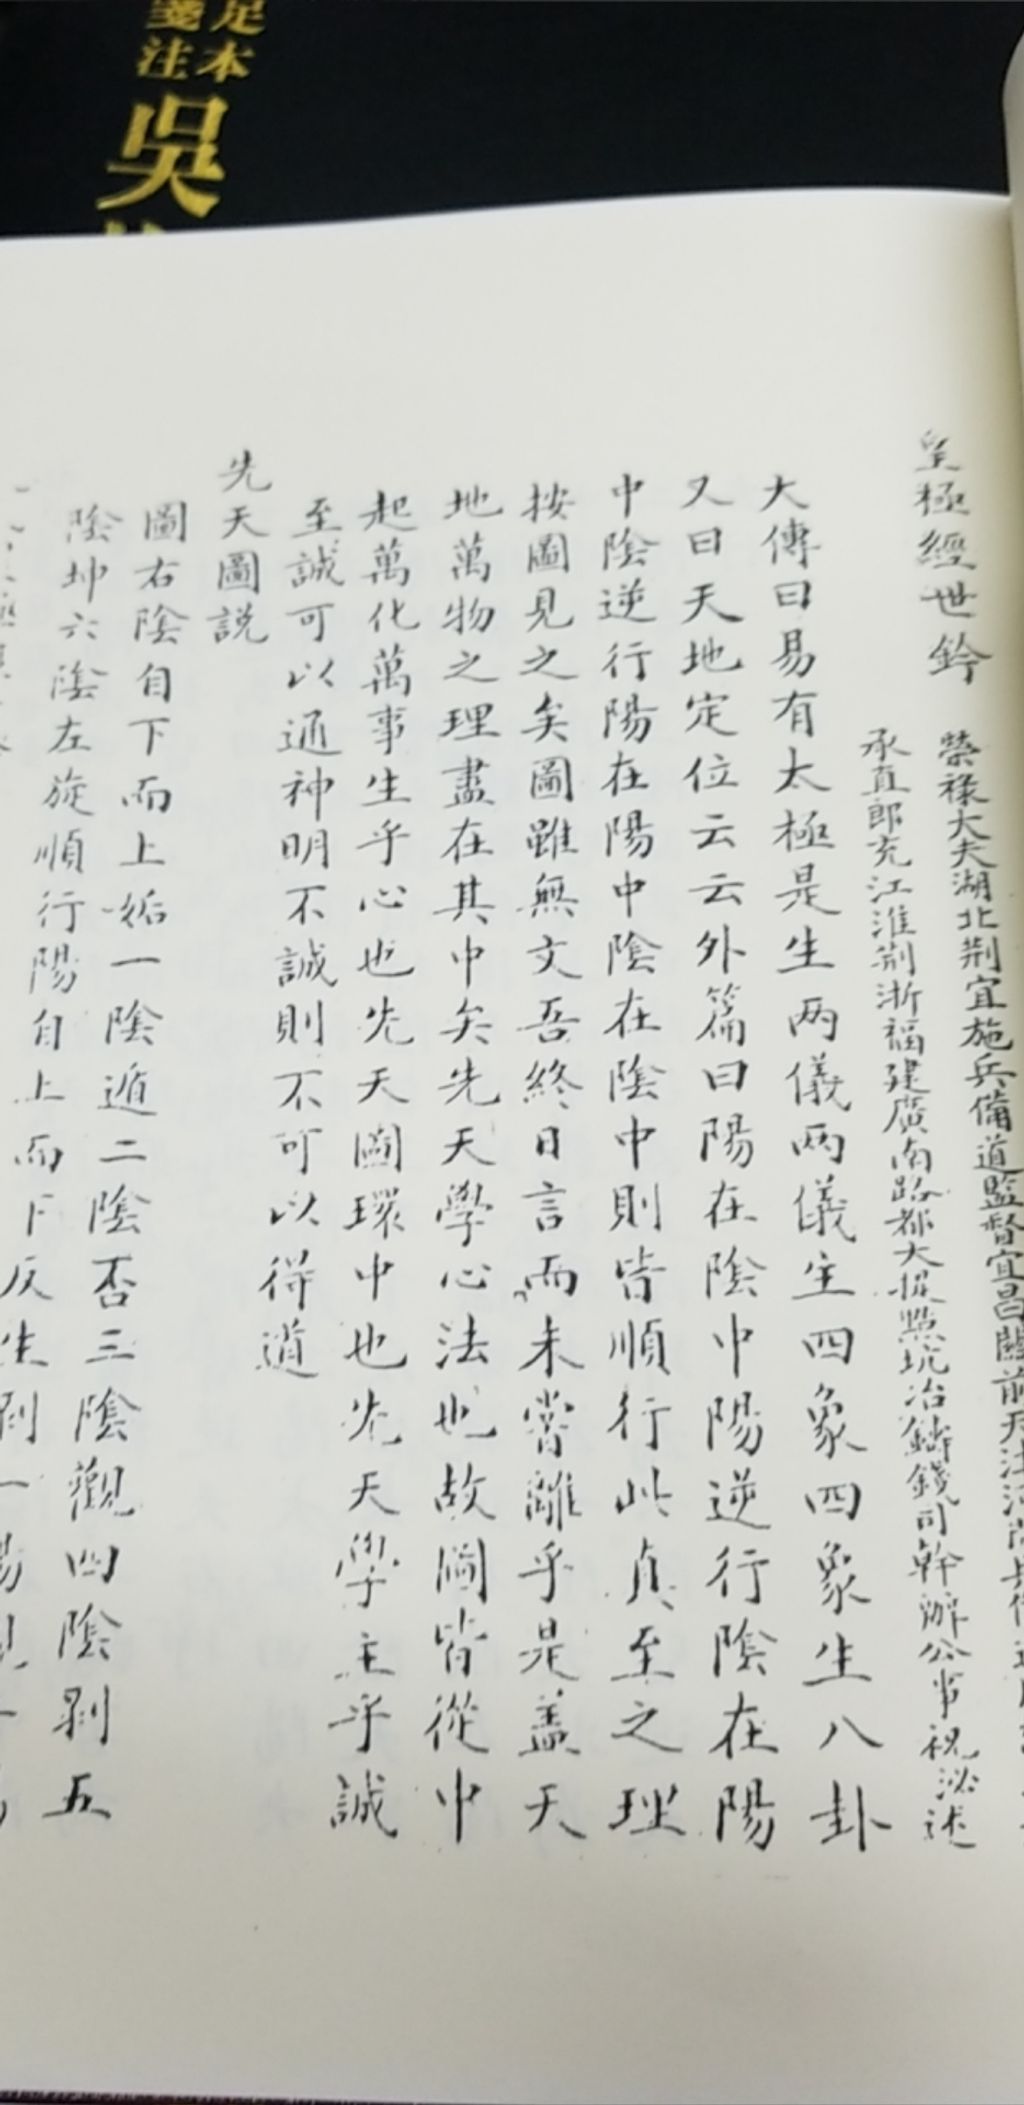 足本
箋注
吳
皇極經世鈐
榮祿大夫湖北荆宜施兵備道監督宜昌關前天津河間兵備道
承直郎充江淮荆浙福建廣南路都大提點坑冶鑄錢司幹辦公事祝泌述
大傳曰易有太極是生两儀两儀生四象四象生八卦
又曰天地定位云云外篇曰陽在陰中陽逆行陰在陽
中陰逆行陽在陽中陰在陰中則皆順行此真至之理
按圖見之矣圖雖無文吾終日言而未嘗離乎是盖天
地萬物之理盡在其中矣先天學心法也故圖皆從中
起萬化萬事生乎心也先天圖環中也先天學主乎誠
至誠可以通神明不誠則不可以得道
先天圖説
圖右陰自下而上姤一陰遁二陰否三陰觀四陰剥五
陰坤六陰左旋順行陽自上而下反生剥一陽觀